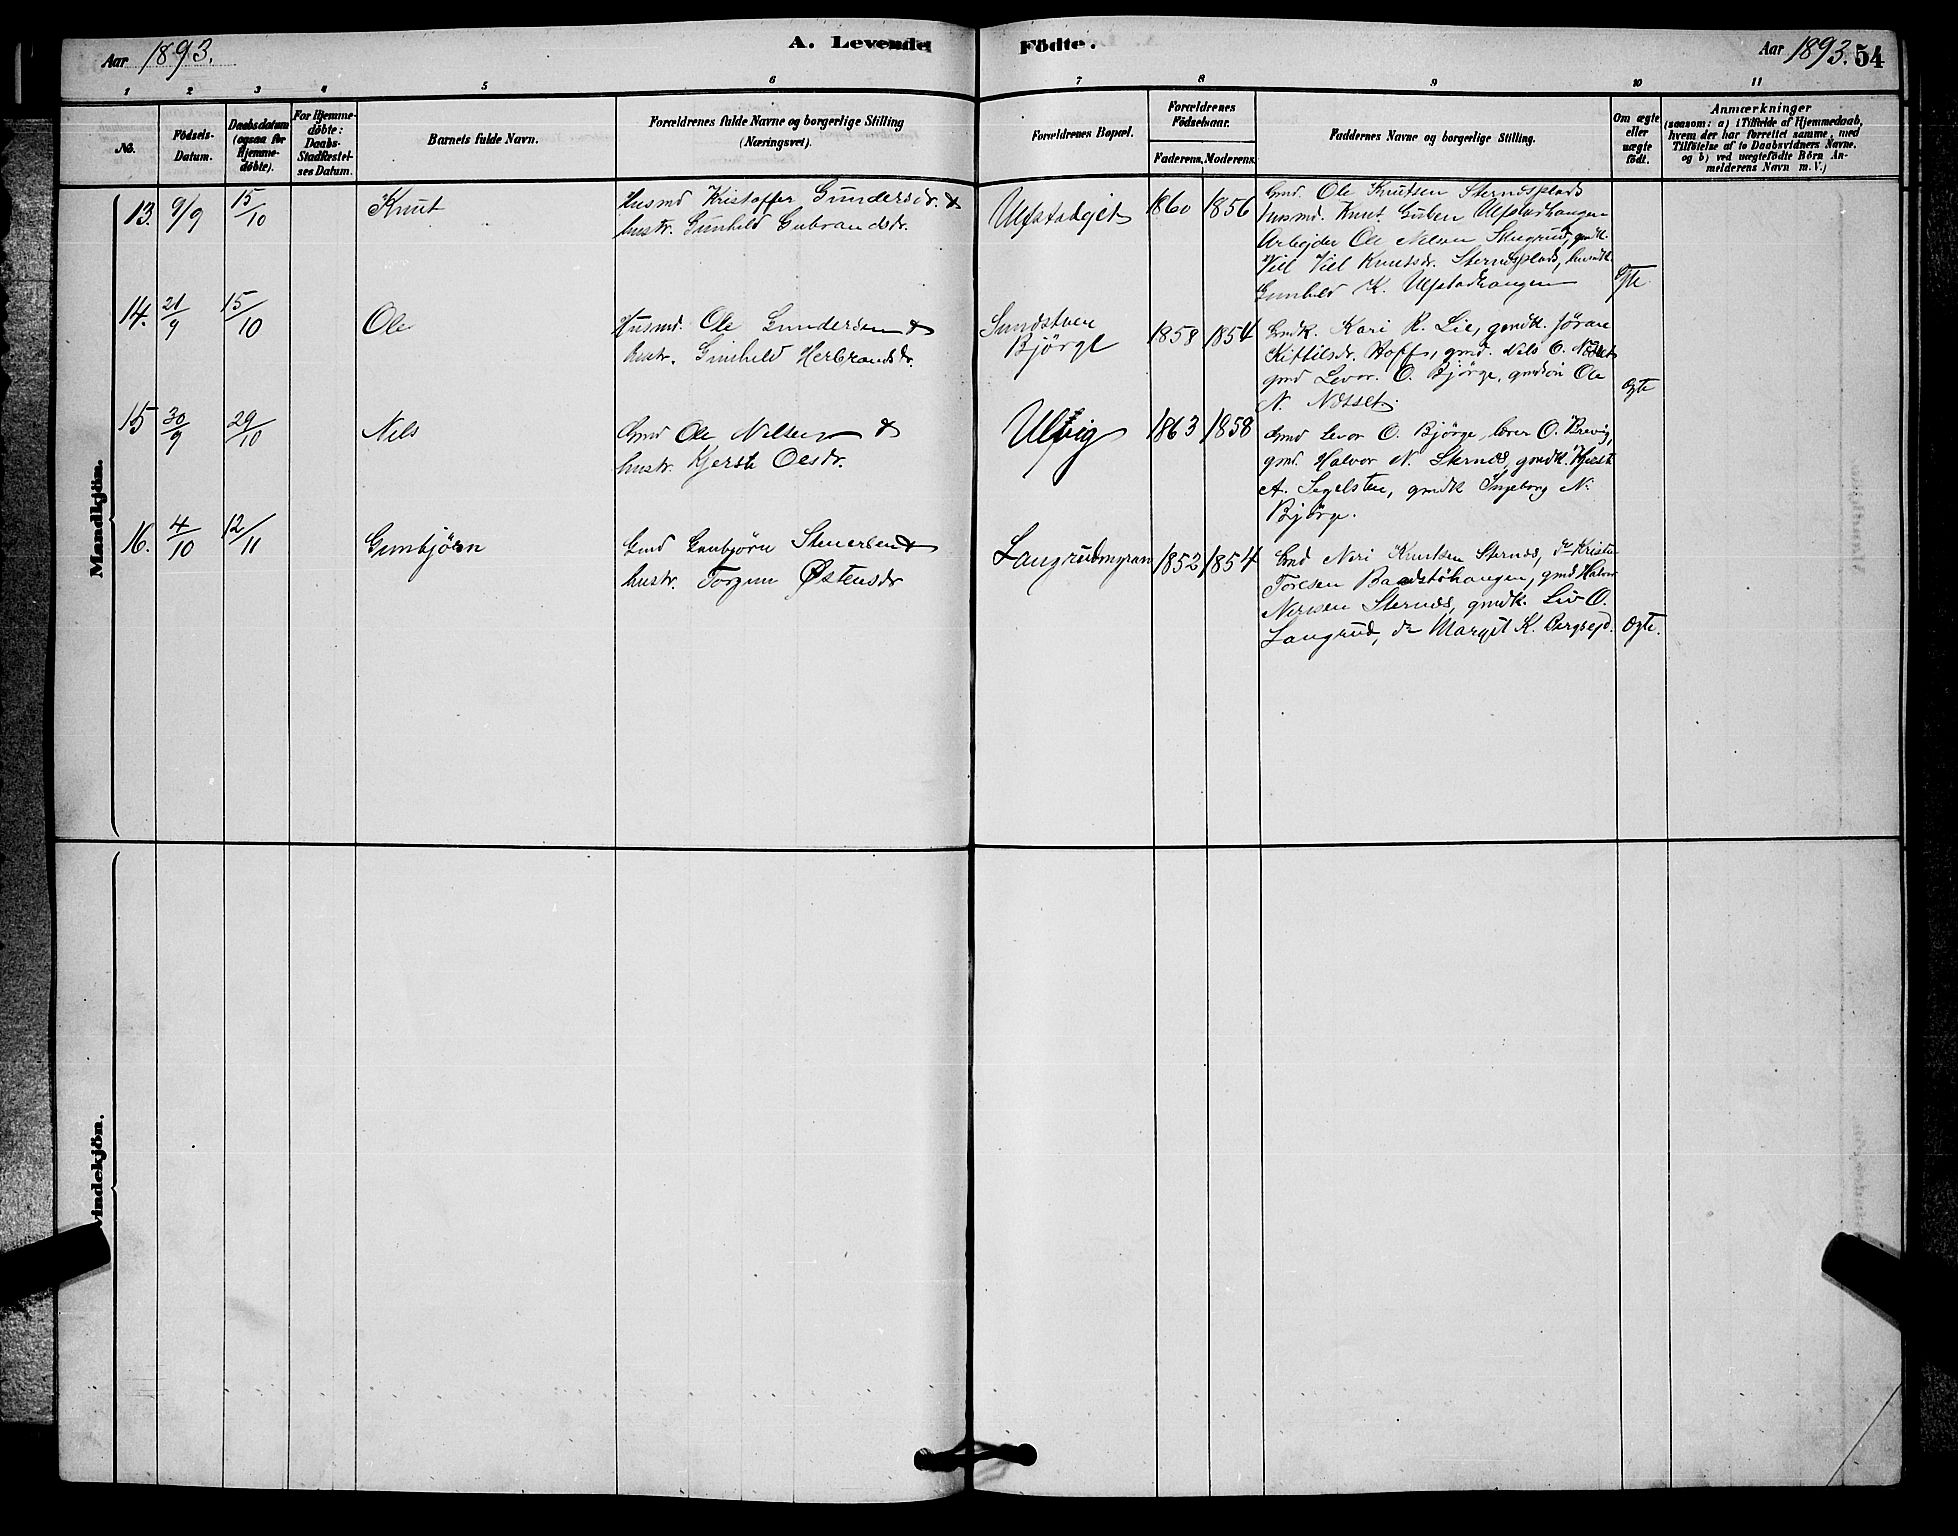 A. Levende Födte.
Aar 1893.
Aar 1893. 54
1 2 3 4 5 6 7 8 9 10 11
No.
Födsels-Datum.
Daabsdatum (ogsaa for Hjemme-döbte).
For Hjemme-döbte: Daabs-Stadfæstel-ses Datum.
Barnets fulde Navn.
Forældrenes fulde Navne og borgerlige Stilling
(Næringsvei).
Forældrenes Bopæl.
Forældrenes Födselsaar.
Faderens. Moderens.
Faddernes Navne og borgerlige Stilling.
Om ægte eller uægte födt.
Anmærkninger
(saasom: a) i Tilfælde af Hjemmedaab,
hvem der har forrettet samme, med
Tilföielse af to Daabsvidners Navne,
og b) ved uægtefödte Börn An-
melderens Navn m. V.)
Mandkjön.
13. 9/9 15/10 Knut
Husmd Kristoffer Gundersdr. &
hustr. Gunhild Gubrandsdr.
Ulfstadgjet 1860 1856
Gmd. Ole Knutsen Sternesplads
husmd. Knut Gulsen Ulfstadhaugen
Arbejder Ole Nilsen Skugrud, gmdk.
Vil Knutsdr. Sternesplads, husmdk.
Gunhild K. Ulfstadhaugen
Ægte
14. 21/9 15/10 Ole
Husmd. Ole Gundersen &
hustr. Gunhild Herbrandsdr.
Sundstuen
Björge 1858 1854
Gmdk. Kari R. Lie, gmdk. Jöran
Kittilsdr. Hoff, gmd. Nils O. Næset
gmd Levor O. Björge, gmdsön Ole
N. Næsset.
Ægte
15 30/9 29/10 Nils
Gmd Ole Nilsen &
hustr. Kjersti Olsdr.
Ulvig 1863 1858
Gmd Levor O. Björge, lærer O. Brevig,
gmd. Halvor N. Sternes, gmdk. Kjersti
A. Segelsten, gmdk Ingeborg N.
Björge.
16. 4/10 12/11 Gunbjörn
Gmd Gunbjörn Stenersen &
hustr. Torgun Østensdr
Langrudmgran 1852 1854
Gmd Niri Knutsen Sternes, do Kristen
Toresen Baastöhaugen, gmd Halvor
Nirisen Sternes, gmdk. Liv O.
Langrud, do Margit K. Bergseje.
Ægte.
vindekjön.